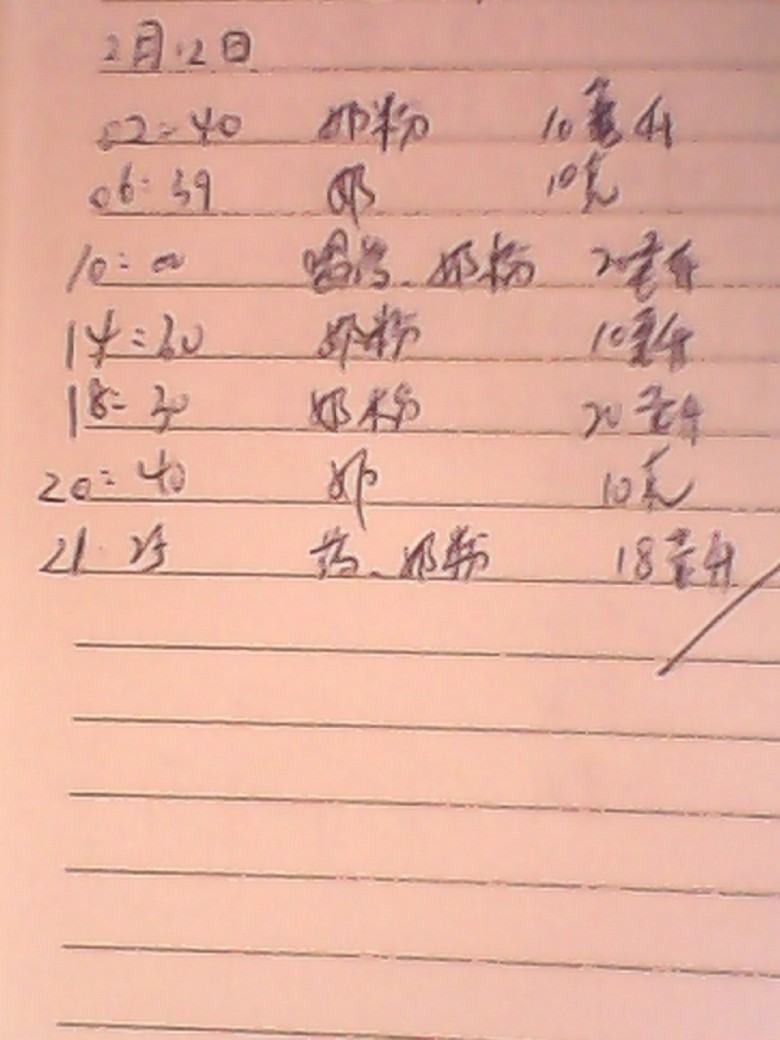 2月12日
02:40 奶粉 10毫升
06:39 奶 10克
10:00 喂药、奶粉 20毫升
14:30 奶粉 10毫升
18:30 奶粉 20毫升
20:40 奶 10克
21:25 药、奶粉 18毫升